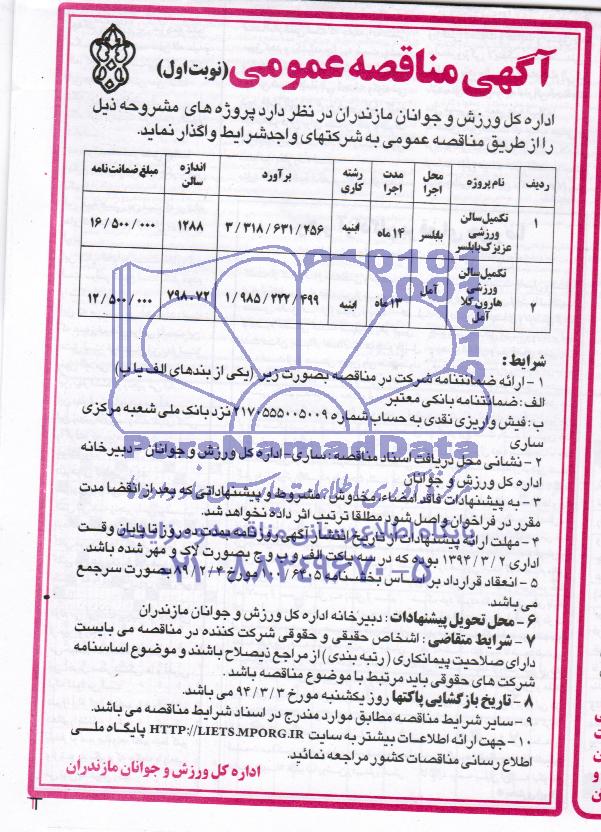 آگهی مناقصه عمومی (نوبت اول)
اداره کل ورزش و جوانان مازندران در نظر دارد پروژه های مشروحه ذیل
را از طریق مناقصه عمومی به شرکتهای واجدشرایط واگذار نماید.
ردیف نام پروژه محل اجرا مدت اجرا رشته کاری برآورد اندازه سالن مبلغ ضمانت نامه
۱ تکمیل سالن ورزشی عزیزک بابلسر بابلسر ۱۴ ماه ابنیه ۳/۳۱۸/۶۳۱/۲۵۶ ۱۲۸۸ ۱۶/۵۰۰/۰۰۰
۲ تکمیل سالن ورزشی هارون کلا آمل آمل ۱۳ ماه ابنیه ۱/۹۸۵/۲۲۲/۴۹۹ ۷۹۸۰۷۲ ۱۲/۵۰۰/۰۰۰
شرایط:
۱- ارائه ضمانتنامه شرکت در مناقصه بصورت زیر (یکی از بندهای الف یا ب)
الف: ضمانتنامه بانکی معتبر
ب: فیش واریزی نقدی به حساب شماره ۲۱۷۰۵۵۵۰۰۵۰۰۹ نزد بانک ملی شعبه مرکزی
ساری
۲- نشانی محل دریافت اسناد مناقصه: ساری- اداره کل ورزش و جوانان- دبیرخانه
اداره کل ورزش و جوانان
۳- به پیشنهادات فاقد امضاء، مخدوش، مشروط و پیشنهاداتی که بعد از انقضا مدت
مقرر در فراخوان واصل شود مطلقا ترتیب اثر داده نخواهد شد.
۴- مهلت ارائه پیشنهادات از تاریخ انتشار آگهی روزنامه بمدت ده روز تا پایان وقت
اداری ۱۳۹۴/۳/۲ بوده که در سه پاکت الف و ب و ج بصورت لاک و مهر شده باشد.
۵- انعقاد قرارداد بر اساس بخشنامه ۱۰۰/۶۴۰۵ مورخ ۸۹/۲/۴ بصورت سرجمع
می باشد.
۶- محل تحویل پیشنهادات: دبیرخانه اداره کل ورزش و جوانان مازندران
۷- شرایط متقاضی: اشخاص حقیقی و حقوقی شرکت کننده در مناقصه می بایست
دارای صلاحیت پیمانکاری (رتبه بندی) از مراجع ذیصلاح باشند و موضوع اساسنامه
شرکت های حقوقی باید مرتبط با موضوع مناقصه باشد.
۸- تاریخ بازگشایی پاکتها روز یکشنبه مورخ ۹۴/۳/۳ می باشد.
۹- سایر شرایط مناقصه مطابق موارد مندرج در اسناد شرایط مناقصه می باشد.
۱۰- جهت ارائه اطلاعات بیشتر به سایت HTTP://LIETS.MPORG.IR پایگاه ملی
اطلاع رسانی مناقصات کشور مراجعه نمائید.
اداره کل ورزش و جوانان مازندران
ParsNamadData
پایگاه اطلاع رسانی مناقصه و مزایده
۰۲۱-۸۸۳۴۹۶۷۰-۵